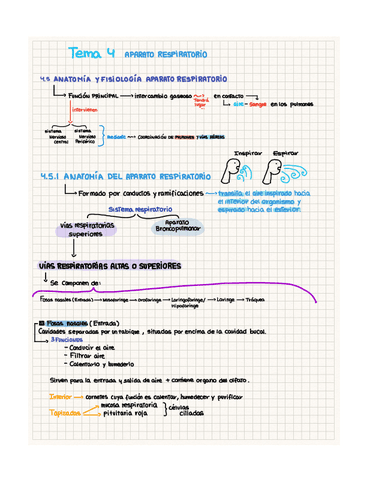 Tema 4 APARATO RESPIRATORIO
4.5 ANATOMÍA Y FISIOLOGÍA APARATO RESPIRATORIO
FUNCIÓN PRINCIPAL → intercambio gaseoso → Tendrá lugar en contacto
intervienen
→ aire-sangre en los pulmones
sistema nervioso central
sistema nervioso Periférico
mediante → COORDINACIÓN DE
Inspirar Espirar
4.5.1 ANATOMÍA DEL APARATO RESPIRATORIO
Formado por conductos y ramificaciones → transita el aire inspirado hacia
el interior del organismo y
espirado hacia el exterior.
Sistema respiratorio
vías respiratorias superiores
Aparato Broncopulmonar
VÍAS RESPIRATORIAS ALTAS O SUPERIORES
Se Componen de:
Fosas nasales (Entrada) → Nasofaringe → Orofaringe → Laringofaringe/ Hipofaringe → Laringe → Tráquea
Fosas nasales (Entrada)
Cavidades separadas por un tabique, situadas por encima de la cavidad bucal.
3 Funciones
- Conducir el aire
- Filtrar aire
- Calentarlo y humederlo
Sirven para la entrada y salida de aire + contiene organo del olfato.
Interior → cornetes cuya función es calentar, humedecer y purificar
Tapizadas → mucosa respiratoria
pituitaria roja
células ciliadas